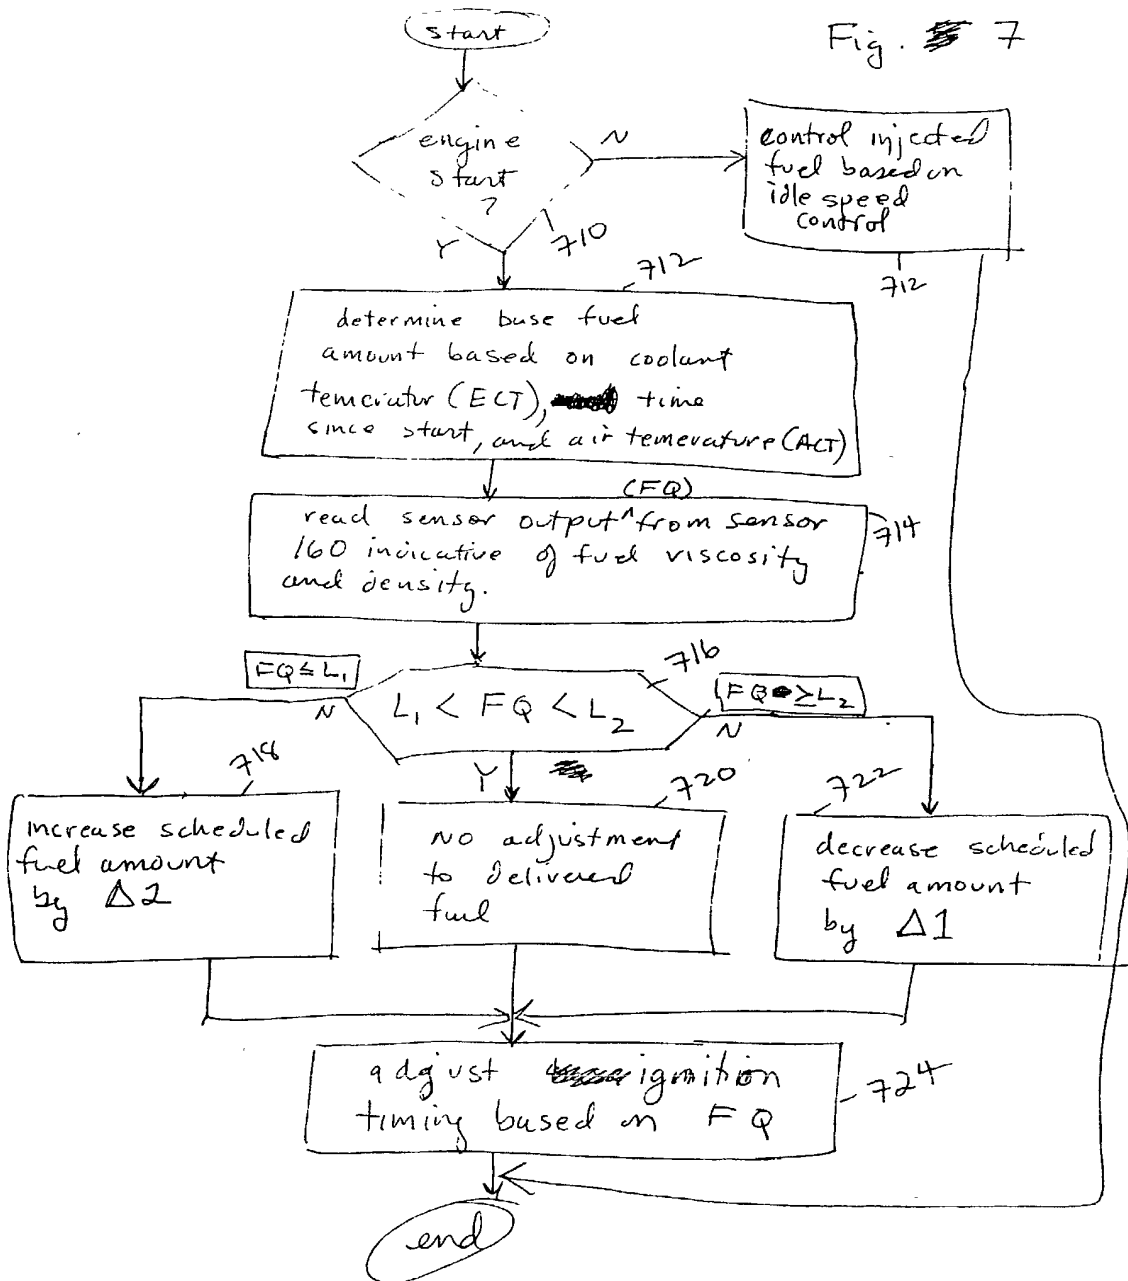 Fig. 7
start
engine
start
?
N
710
Y
control injected
fuel based on
idle speed
control
712
712
determine base fuel
amount based on coolant
temeriatur (ECT), time
since start, and air temerature (ACT)
(FQ)
read sensor output ^ from sensor
160 indicative of fuel viscosity
and density.
714
FQ ≤ L1
N
L1 < FQ < L2
716
FQ ≥ L2
N
Y
718
increase scheduled
fuel amount
by Δ2
720
No adjustment
to delivered
fuel
722
decrease scheduled
fuel amount
by Δ1
adjust ignition
timing based on FQ
724
end